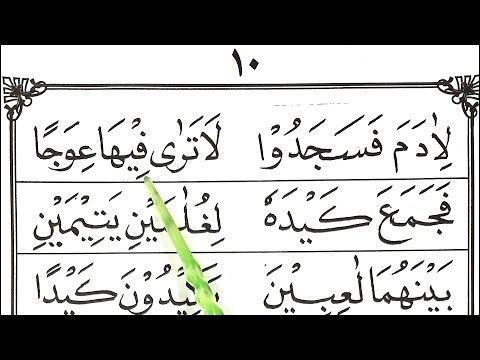 ١٠
لِاٰدَمَ فَسَجَدُوْا لَاتَرٰى فِيْهَا عِوَجًا
فَجَمَعَ كَيْدَهٗ لِغُلٰمَيْنِ يَتِيْمَيْنِ
بَيْنَهُمَا لٰعِبِيْنَ يَكِيْدُوْنَ كَيْدًا